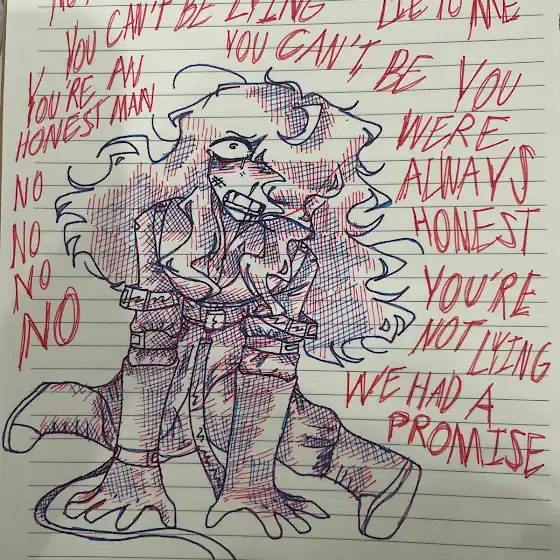 YOU CAN'T BE LYING
LIE TO ME
YOU CAN'T BE
YOU'RE AN
HONEST MAN
NO
NO
NO
NO
YOU
WERE
ALWAYS
HONEST
YOU'RE
NOT LYING
WE HAD A
PROMISE